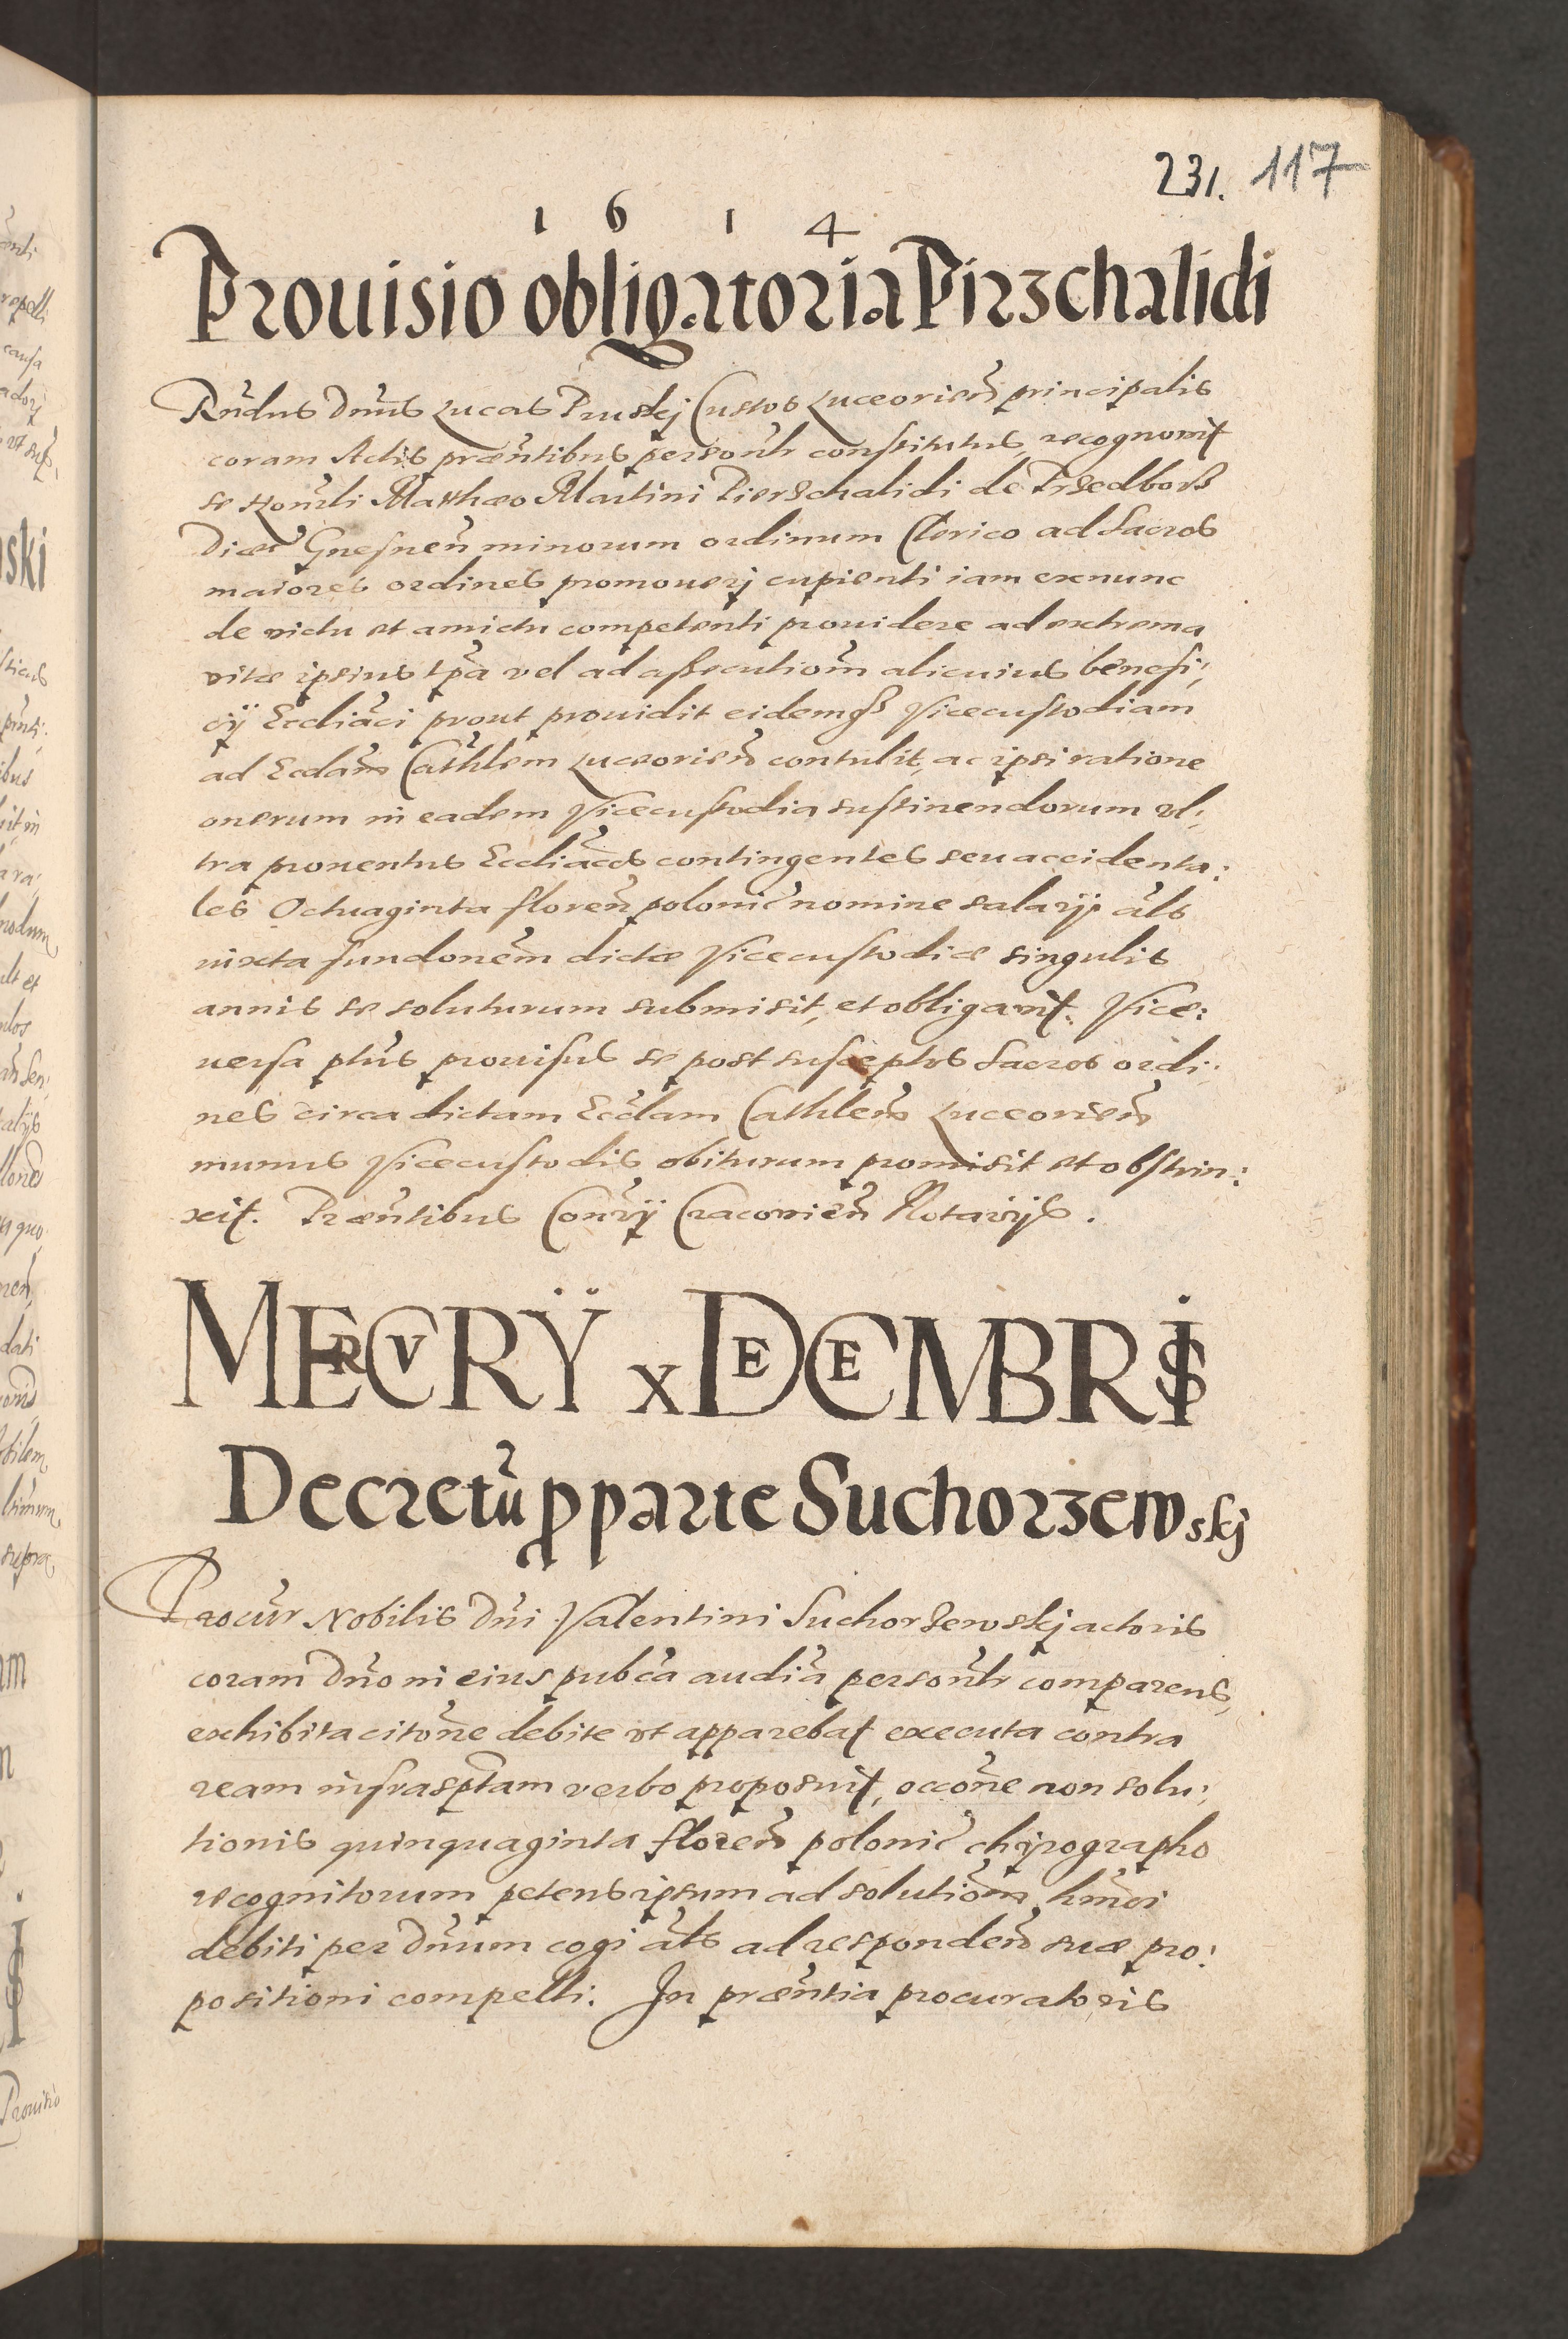 231. 117
1 6 1 4
Prouisio obligatoria Pirzchalidi
Rńdus Dńus Lucas Pruskj Custos Luceorień principalis
coram Actis præńtibus persońlr constitutus, recognouit
se Honńli Matthæo Martini Pierzchalidi de Przedborz
Diæc Gnesneń minorum ordinum Clerico ad Sacros
maiores ordines promouerj cupienti iam exnunc
de victu et amictu competenti prouidere ad extrema
vitæ ipsius tpa vel ad assecutiom alicuius benefi,
cij Eccliaci prout prouidit eidemqz Vicecustodiam
ad Ecclam Cathlem Luceorień contulit, ac ipsi ratione
onerum in eadem Vicecustodia sustinendorum vl,
tra prouentus Eccliacos contingentes seu accidenta:
les Octuaginta floreń polonic nomine salarij als
iuxta fundonem dictæ Vicecustodiæ singulis
annis se soluturum submisit, et obligauit. Vice:
uersa ptus prouisus se post susceptos Sacros ordi,
nes circa dictam Ecclam Cathleń Luceorień
munus Vicecustodis obiturum promisit et obstrin:
xit. Præńtibus Conrij Cracouień Notarijs.
MERCVRIJ x DECEMBRIS
Decretū p parte Suchorzewskj
Procur Nobilis Dńi Valentini Suchorzewskj actoris
coram Dńo in eius pubca audia persońlr comparens,
exhibita citone debite vt apparebat executa contra
ream infrasptam verbo proposuit, occone non solu,
tionis quinquaginta floreń polonic chyrographo
recognitorum petens ipsum ad solutiom hmoi
debiti per Dńum cogi als ad respondeń suæ pro,
positioni compelli. In præńtia procuratoris